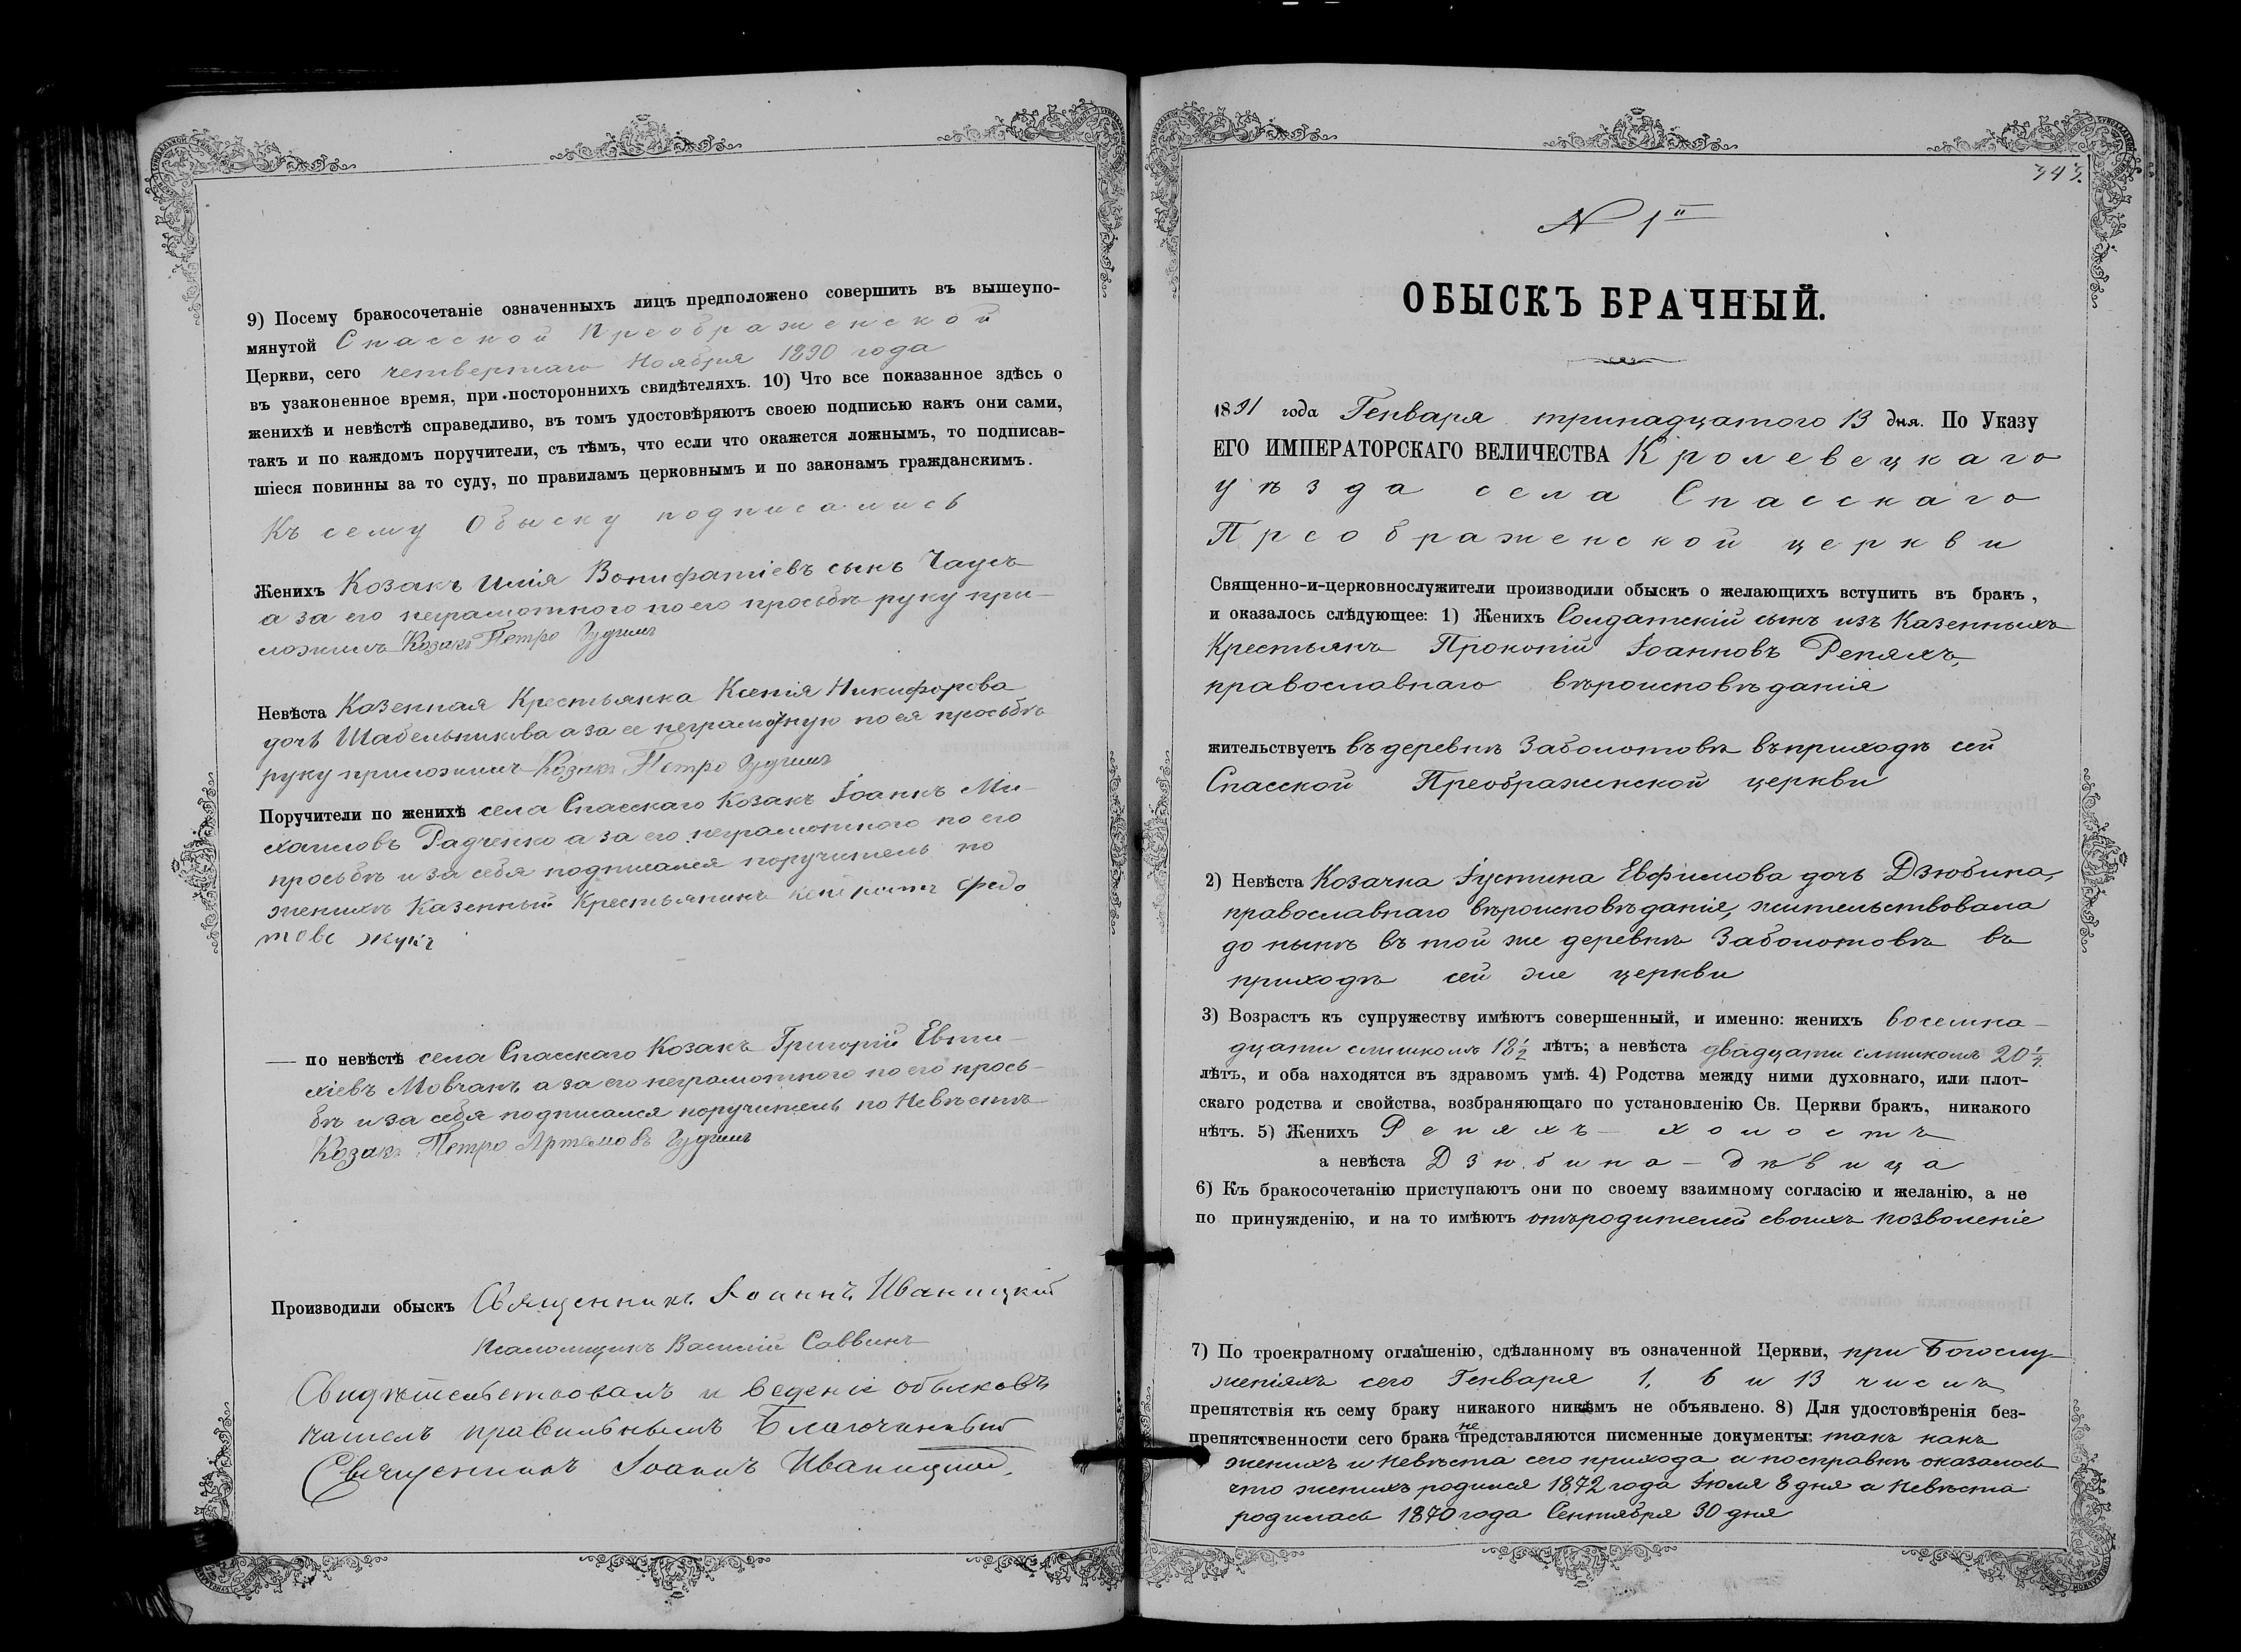 9) Посему бракосочетаніе означенныхъ лицъ предположено совершить въ вышеупо-
мянутой Спасской Преображенской
Церкви, сего четвертаго Ноября 1890 года
въ узаконенное время, при постороннихъ свидѣтеляхъ. 10) Что все показанное здѣсь о
женихѣ и невѣстѣ справедливо, въ томъ удостовѣряютъ своею подписью какъ они сами,
такъ и по каждомъ поручители, съ тѣмъ, что если что окажется ложнымъ, то подписав-
шіеся повинны за то суду, по правиламъ церковнымъ и по законамъ гражданскимъ.
Къ сему Обыску подписались
Женихъ Козакъ Илія Вонифатіевъ сынъ Чаусъ
а за его неграмотного по его просьбѣ руку при-
ложилъ Козакъ Петро Гудимъ
Невѣста Казенная Крестьянка Ксенія Никифорова
дочь Шабельникова а за ее неграмотную по ея просьбѣ
руку приложилъ Козакъ Петро Гудимъ
Поручители по женихѣ села Спасскаго Козакъ Іоаннъ Ми-
хаиловъ Радченко а за его неграмотного по его
просьбѣ и за себя подписался поручитель по
женихѣ Казенный Крестьянинъ Федо
товъ Жукъ
— по невѣстѣ села Спасскаго Козакъ Григорій Евти-
хіевъ Мовчанъ а за его неграмотного по его прось-
бѣ и за себя подписался поручитель по Невѣстѣ
Козакъ Петро Артемовъ Гудимъ
Производили обыскъ Священникъ Іоаннъ Иваницкій
Псаломщикъ Василій Саввинъ
Свидѣтельствовалъ и веденіе обысковъ
нашелъ правильнымъ Благочинный
Священникъ Іоаннъ Иваницкій.
343.
N 1й
ОБЫСКЪ БРАЧНЫЙ.
1891 года Генваря тринадцатого 13 дня. По Указу
ЕГО ИМПЕРАТОРСКАГО ВЕЛИЧЕСТВА Кролевецкаго
уѣзда села Спасскаго
Преображенской церкви
Священно-и-церковнослужители производили обыскъ о желающихъ вступить въ бракъ,
и оказалось слѣдующее: 1) Женихъ Солдатскій сынъ изъ Казенныхъ
Крестьянъ Прокопій Іоанновъ Репяхъ,
православнаго вѣроисповѣданія
жительствуетъ въ деревнѣ Заболотовѣ въ приходѣ сей
Спасской Преображенской церкви
2) Невѣста Козачка Іустина Евфимова дочь Дзюбина,
православнаго вѣроисповѣданія, жительствовала
до нынѣ въ той же деревнѣ Заболотовѣ въ
приходѣ сей же церкви
3) Возрастъ къ супружеству имѣютъ совершенный, и именно: женихъ восемна-
дцати слишкомъ 18½ лѣтъ; а невѣста двадцати слишкомъ 20¼
лѣтъ, и оба находятся въ здравомъ умѣ. 4) Родства между ними духовнаго, или плот-
скаго родства и свойства, возбраняющаго по установленію Св. Церкви бракъ, никакого
нѣтъ. 5) Женихъ Репяхъ — холостъ
а невѣста Дзюбина — дѣвица
6) Къ бракосочетанію приступаютъ они по своему взаимному согласію и желанію, а не
по принужденію, и на то имѣютъ отъ родителей своихъ позволеніе
7) По троекратному оглашенію, сдѣланному въ означенной Церкви, при Богослу-
женіяхъ сего Генваря 1, 6 и 13 числъ
препятствія къ сему браку никакого никѣмъ не объявлено. 8) Для удостовѣренія без-
препятственности сего брака не представляются писменные документы: такъ какъ
женихъ и невѣста сего прихода и по справкѣ оказалось
что женихъ родился 1872 года Іюля 8 дня а невѣста
родилась 1870 года Сентября 30 дня